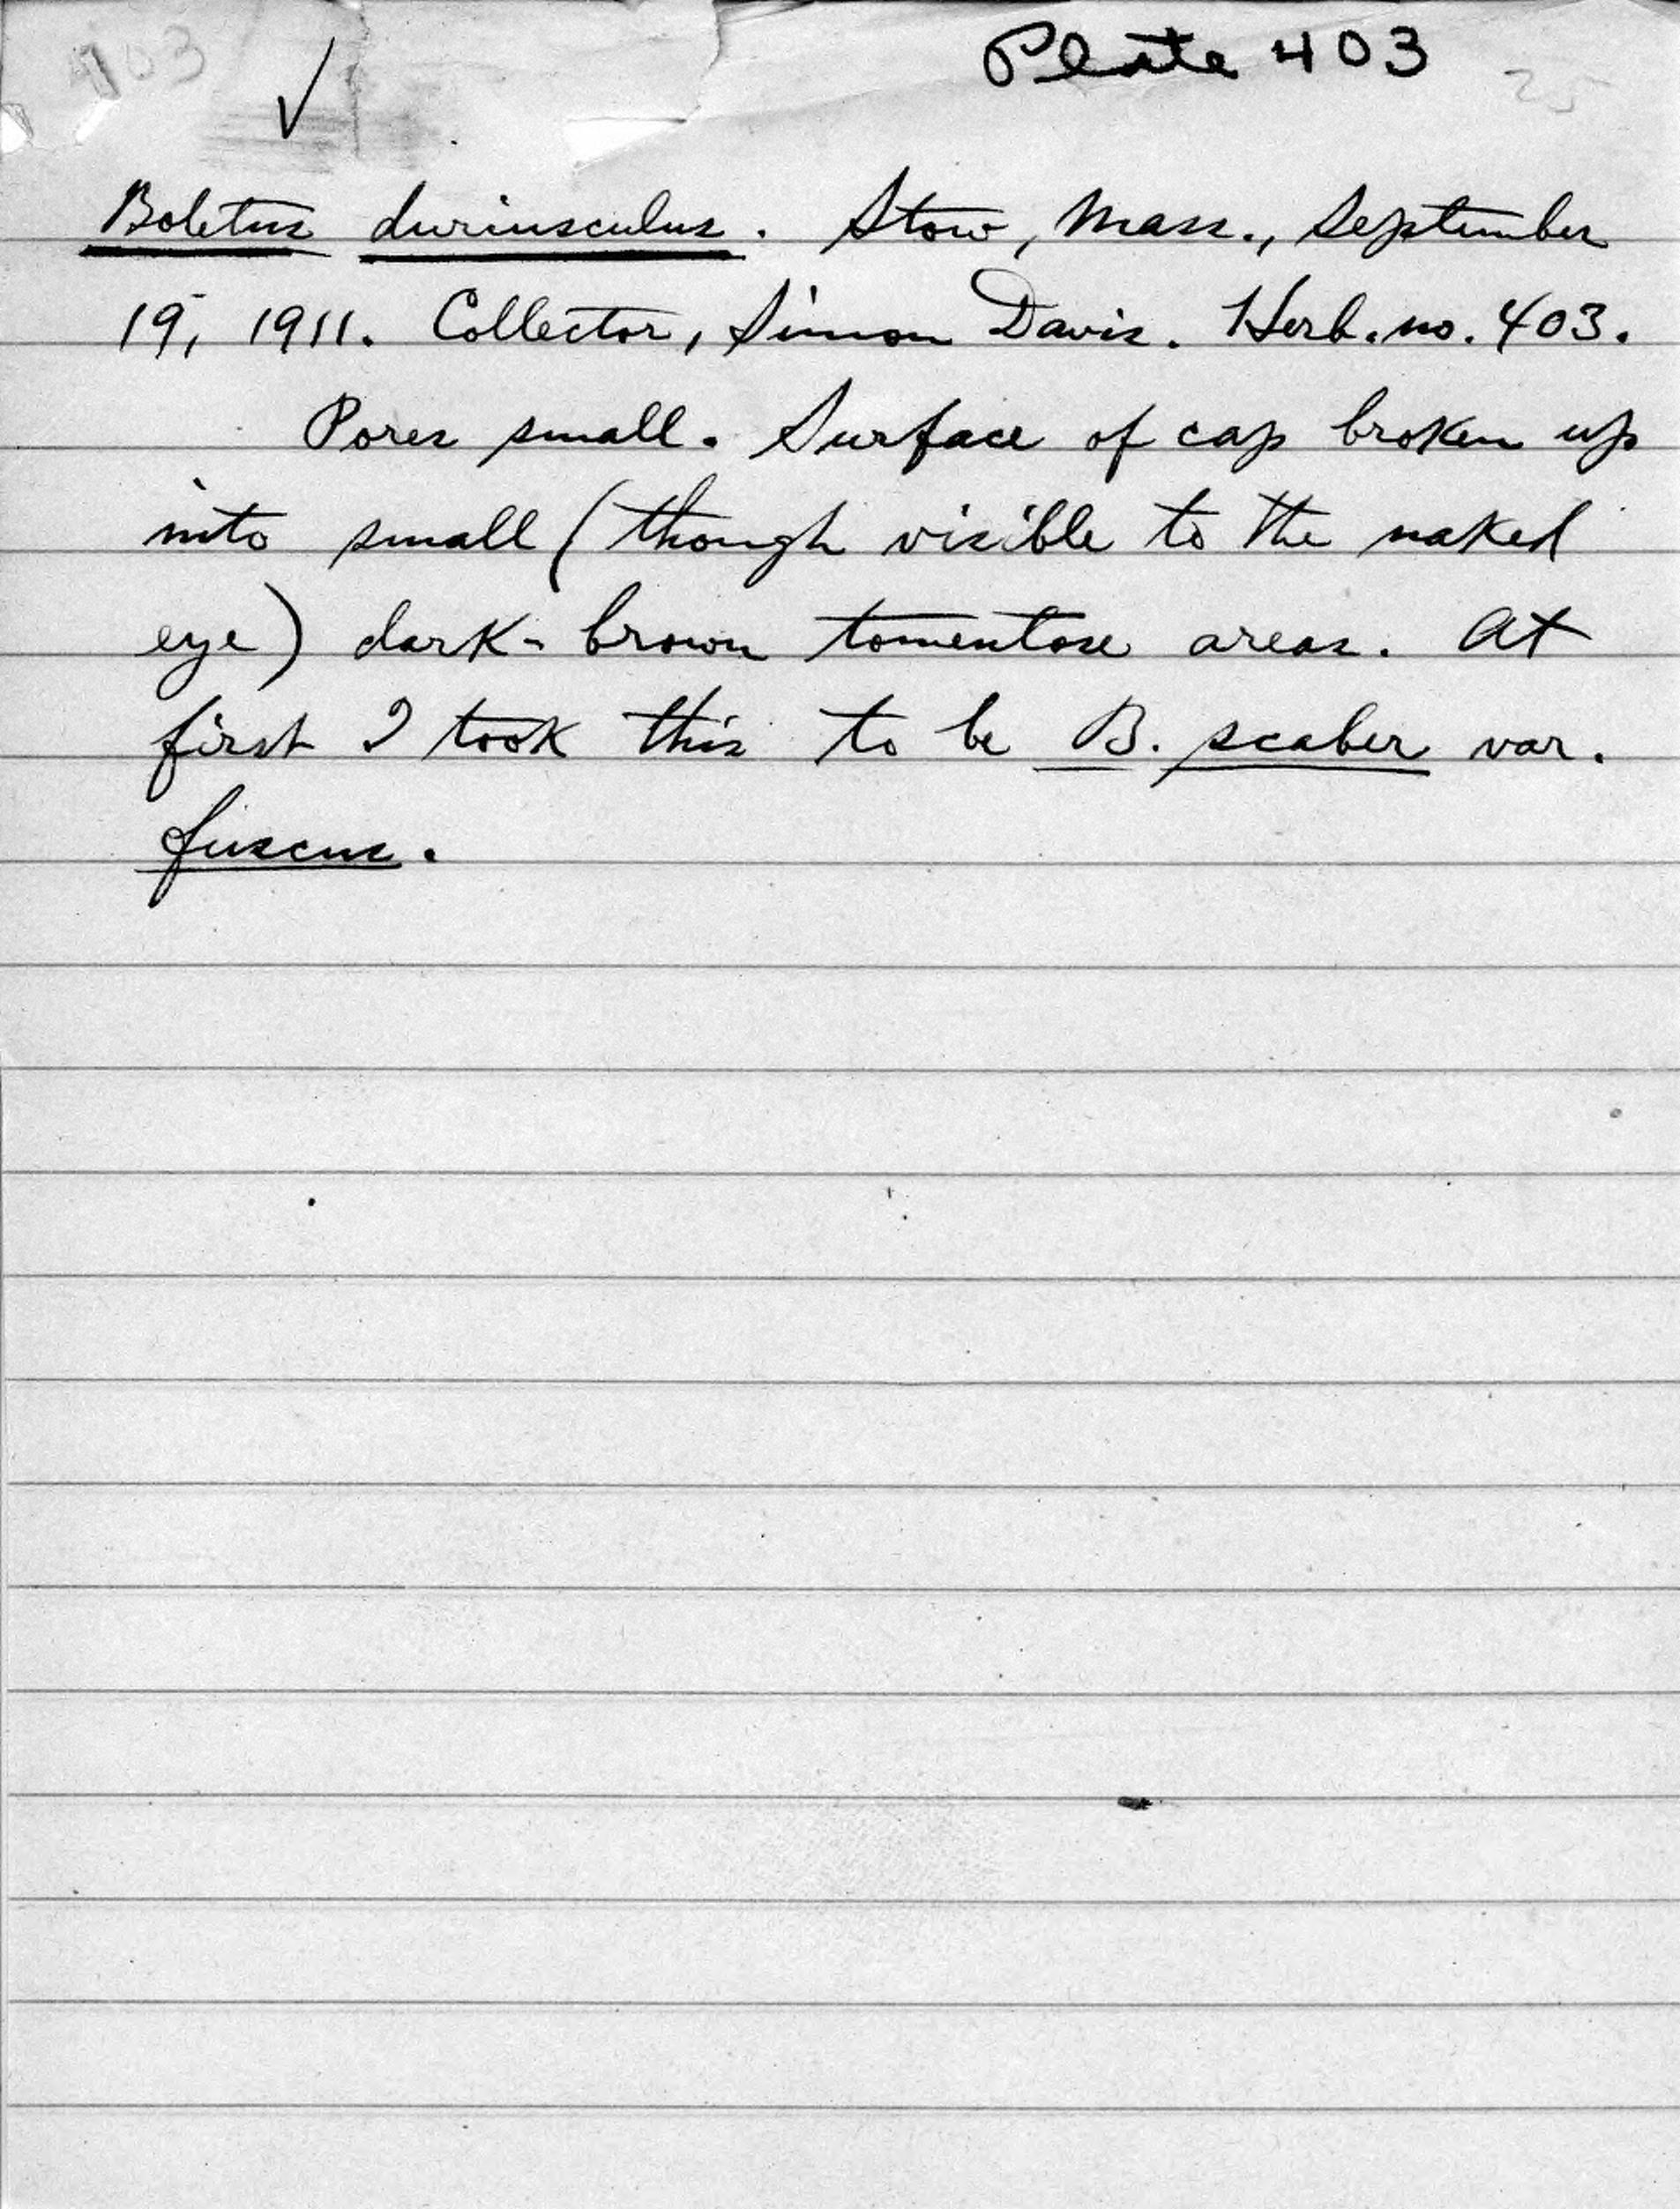 403
Plate 403
25
Boletus duriusculus. Stow, Mass., September
19, 1911. Collector, Simon Davis. Herb. no. 403.
Pores small. Surface of cap broken up
into small (though visible to the naked
eye) dark-brown tomentose areas. At
first I took this to be B. scaber var.
fuscus.